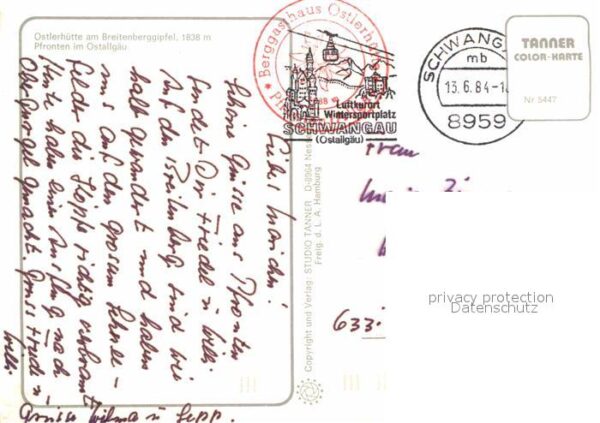 Ostlerhütte am Breitenberggipfel, 1838 m
Pfronten im Ostallgäu
Liebes Mariechen!
Schöne Grüsse aus Pfronten
sendet Dir Friedel u. Willi.
Auf den Breitenberg sind wir
halb gewandert und haben
uns auf den grossen Schnee-
feld die Köpfe richtig verbrannt
Heute haben einen Ausflug nach
Oberg gemacht. Gruss Friedel u.
Willi
Grüsse Wilma u. Sepp.
Berggasthaus Ostlerhütte
Luftkurort
Wintersportplatz
SCHWANGAU
(Ostallgäu)
SCHWANGAU
mb
13.6.84-1
8959
TANNER
COLOR-KARTE
Nr. 5447
Copyright und Verlag: STUDIO TANNER D-8964 Nes
Freig. d. L. A. Hamburg
Frau
633
privacy protection
Datenschutz